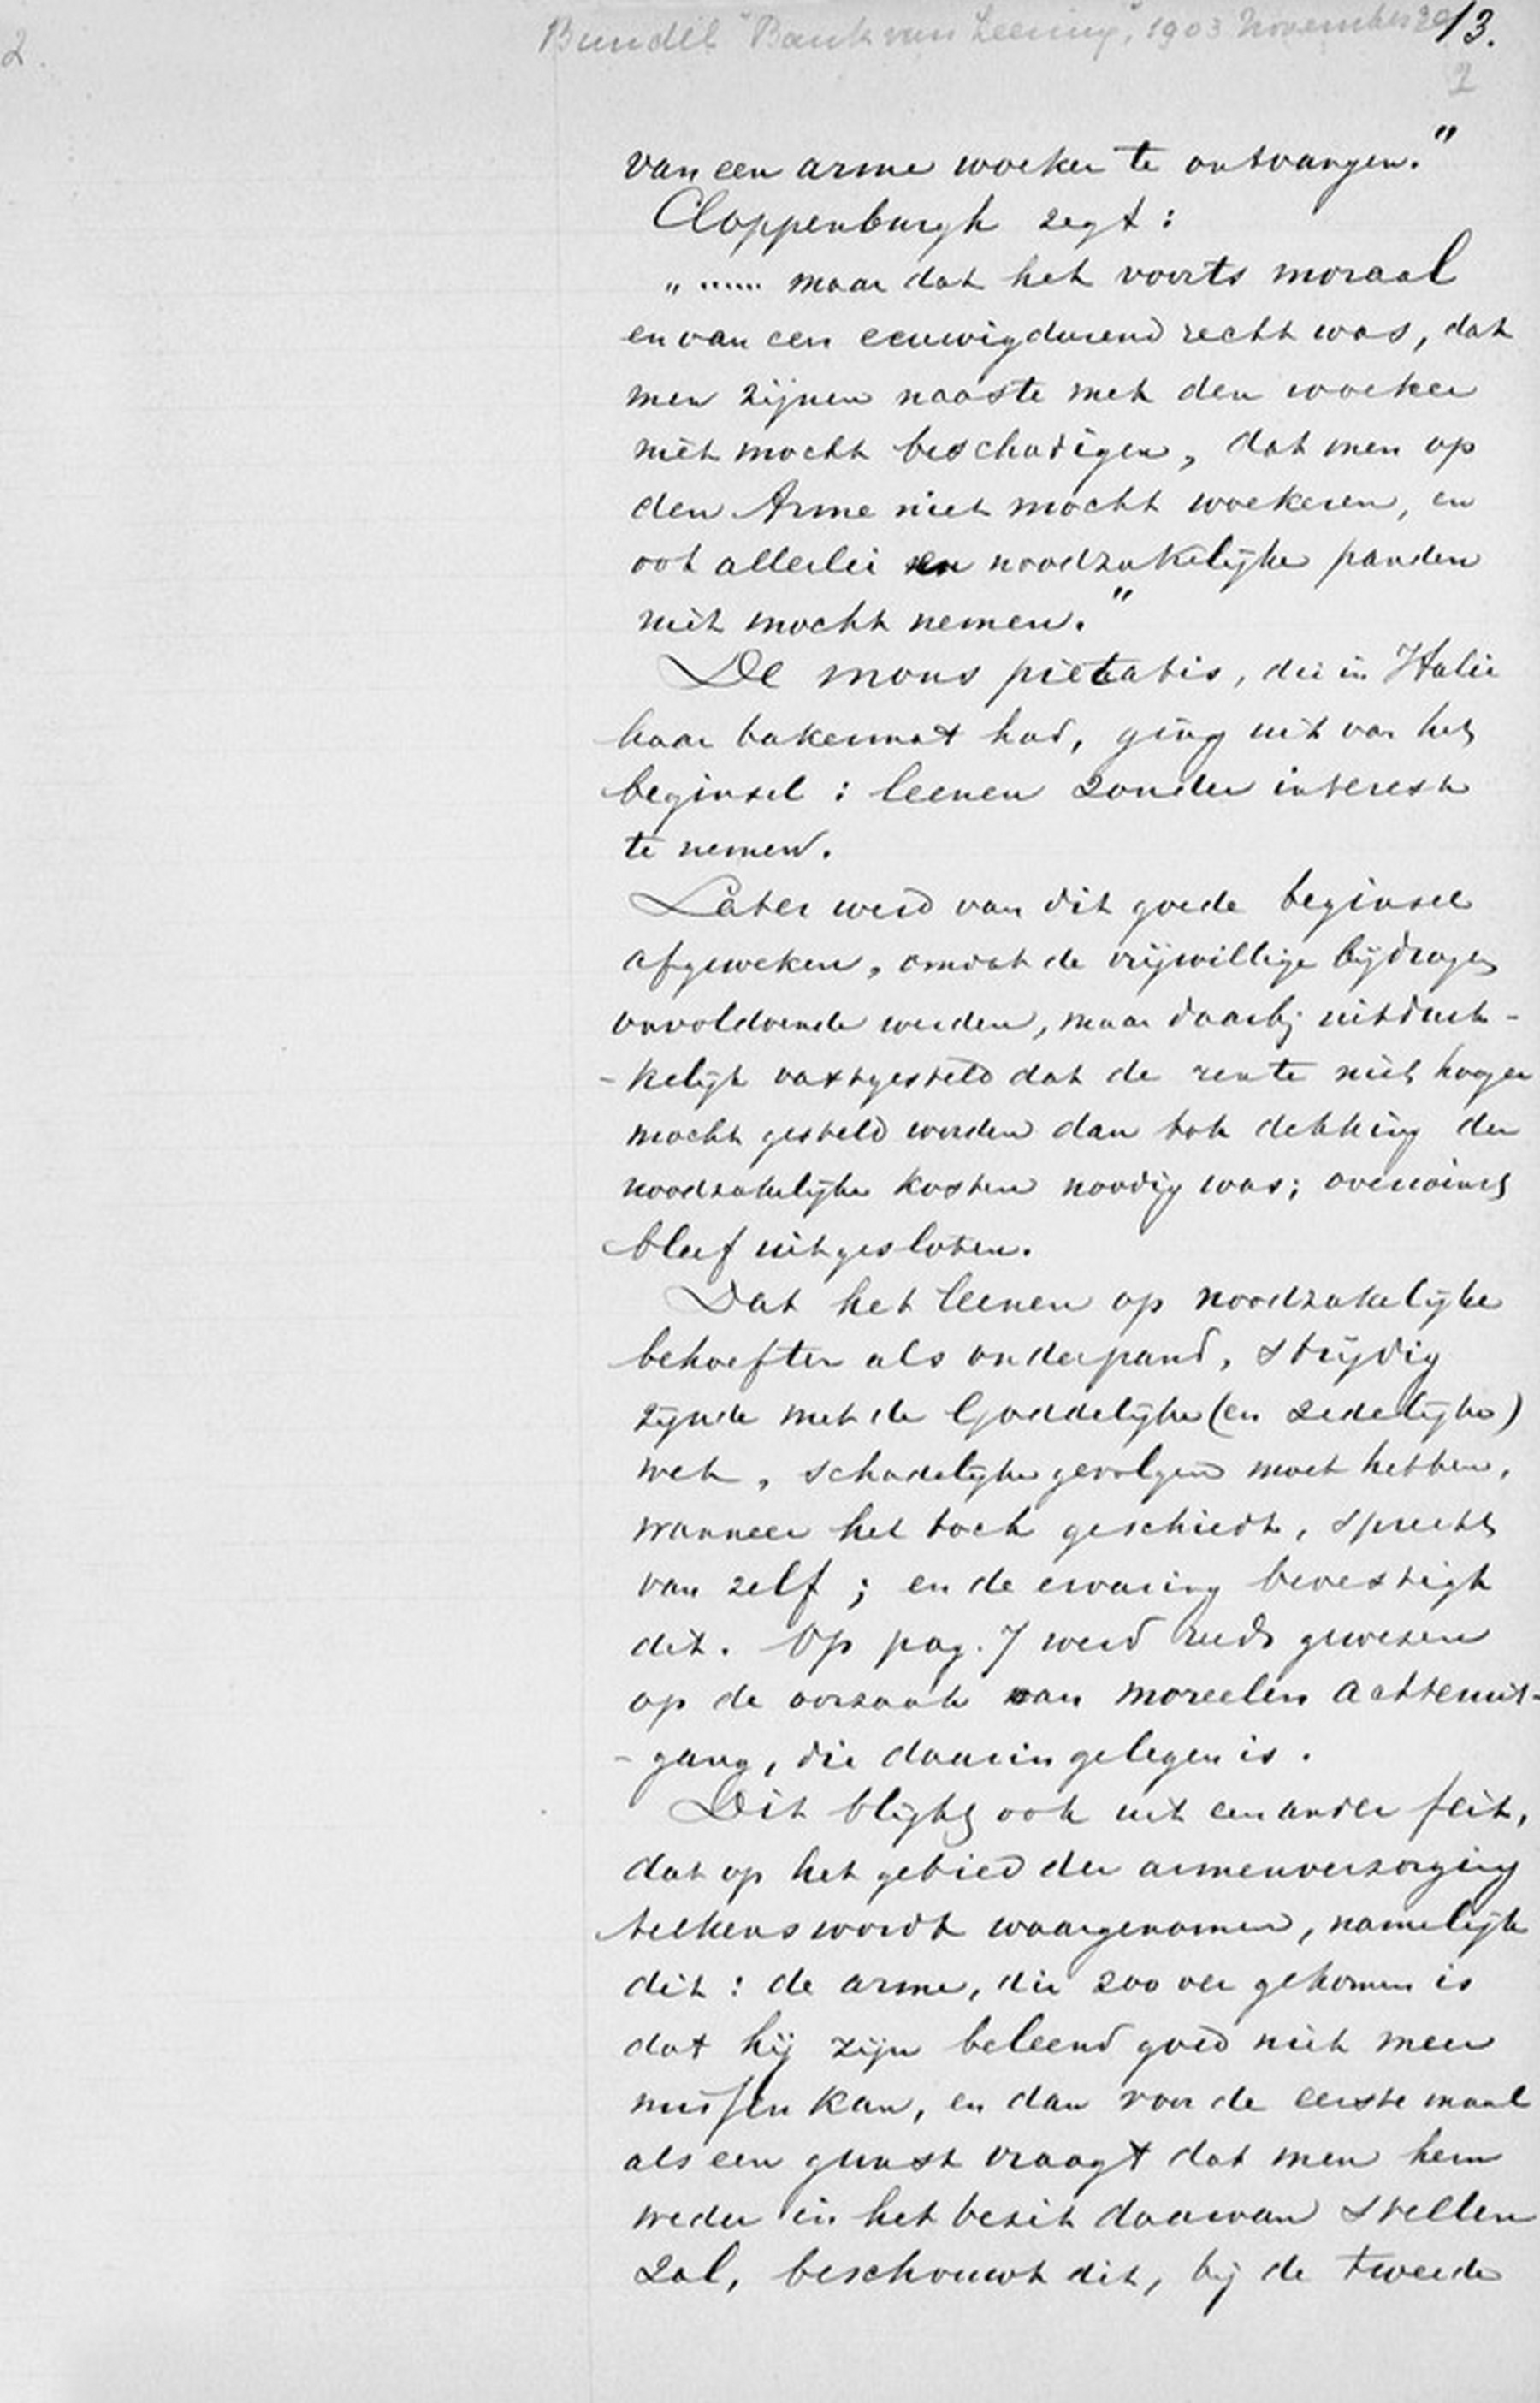 Bundel "Bank van Leening", 1903 November 30
13.
2
2.
van een arme woeker te ontvangen."
Cloppenburgh zegt:
" ...... maar dat het voorts moraal
en van een eeuwigdurend recht was, dat
men zijnen naaste met den woeker
niet mocht beschadigen, dat men op
den Arme niet mocht woekeren, en
ook allerlei noodzakelijke panden
niet mocht nemen."
De mons pietatis, die in Italie
haar bakermat had, ging uit van het
beginsel: leenen zonder interest
te nemen.
Later werd van dit goede beginsel
afgeweken, omdat de vrijwillige bijdragen
onvoldoende werden, maar daarbij uitdruk-
-kelijk vastgesteld dat de rente niet hooger
mocht gesteld worden dan tot dekking der
noodzakelijke kosten noodig was; overwinst
bleef uitgesloten.
Dat het leenen op noodzakelijke
behoeften als onderpand, strijdig
zijnde met de Goddelijke (en zedelijke)
wet, schadelijke gevolgen moet hebben,
wanneer het toch geschiedt, spreekt
van zelf; en de ervaring bevestigt
dit. Op pag. 7 werd reeds gewezen
op de oorzaak van moreelen achteruit-
-gang, die daarin gelegen is.
Dit blijkt ook uit een ander feit,
dat op het gebied der armenverzorging
telkens wordt waargenomen, namelijk
dit: de arme, die zoo ver gekomen is
dat hij zijn beleend goed niet meer
missen kan, en dan voor de eerste maal
als een gunst vraagt dat men hem
weder in het bezit daarvan stellen
zal, beschouwt dit, bij de tweede